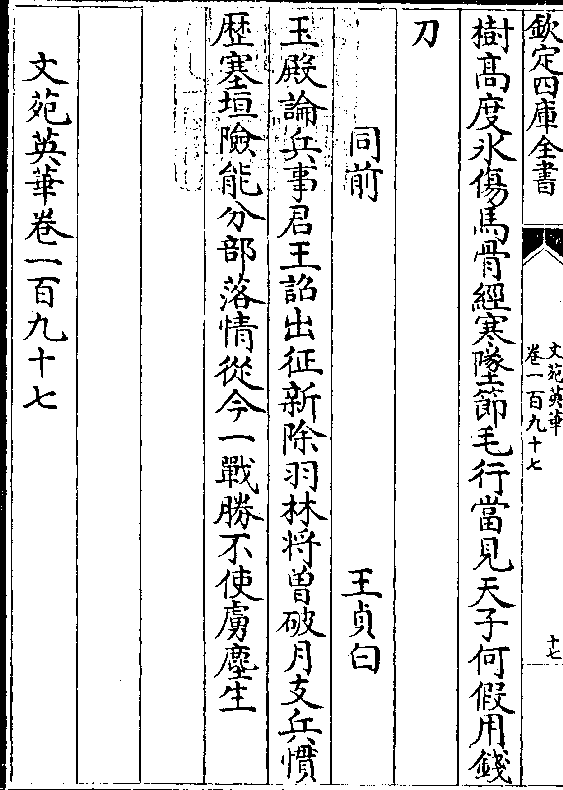 欽定四庫全書
文苑英華
卷一百九十七
十七
樹高度氷傷馬骨經寒墜節毛行當見天子何假用錢
刀
同前
王貞白
玉殿論兵事君王詔出征新除羽林将曽破月支兵慣
歴塞垣險能分部落情從今一戰勝不使虜塵生
文苑英華卷一百九十七